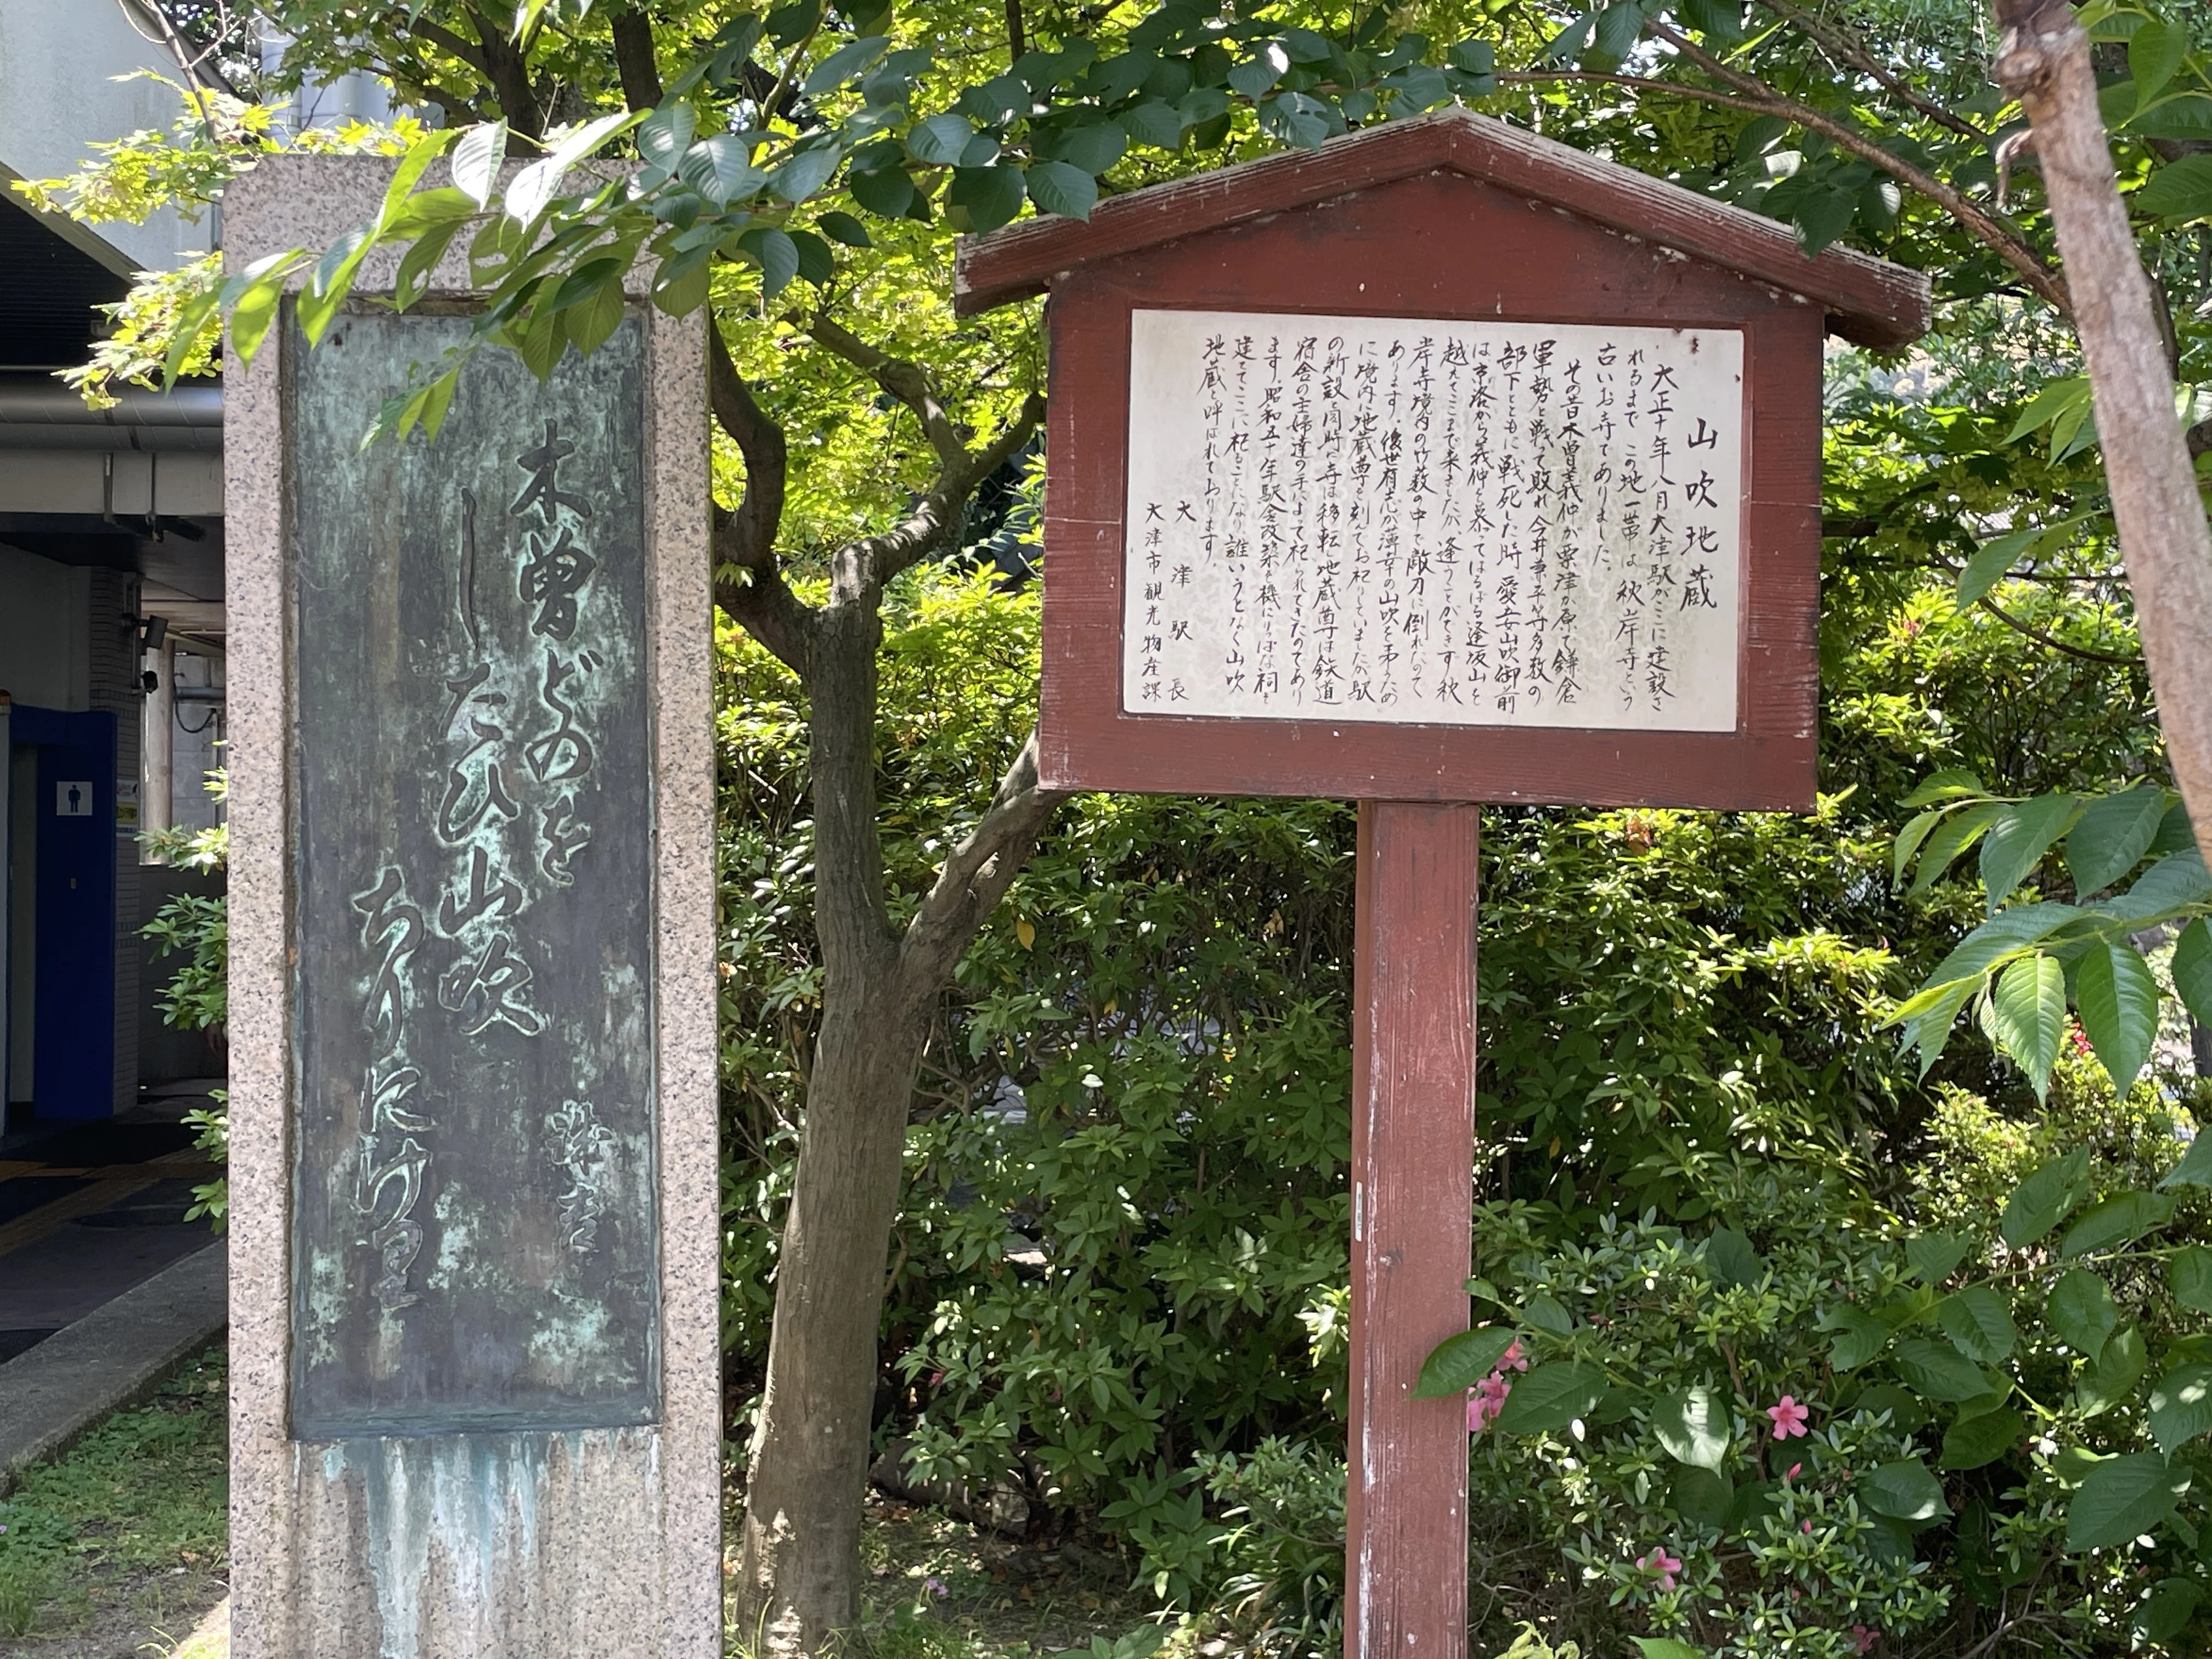 木曽どのを
したひ山吹
ちりにけり
山吹地蔵
大正十年八月大津駅がここに建設さ
れるまで この地一帯は 秋岸寺という
古いお寺でありました。
その昔木曽義仲が粟津が原で鎌倉
軍勢と戦って敗れ 今井兼平等多数の
部下とともに戦死した時 愛妾山吹御前
は京洛から義仲を慕ってはるばる逢坂山を
越えてここまで来ましたが、逢うことができず秋
岸寺境内の竹薮の中で敵刃に倒れたので
あります。後世有志が薄幸の山吹を弔うため
に境内に地蔵尊を刻んでお祀りしていましたが 駅
の新設と同時に寺は移転 地蔵尊は鉄道
宿舎の主婦達の手によって祀られてきたのであり
ます。昭和五十年駅舎改築を機にりっぱな祠を
建ててここに祀ることになり 誰いうとなく山吹
地蔵と呼ばれております。
大津駅長
大津市観光物産課